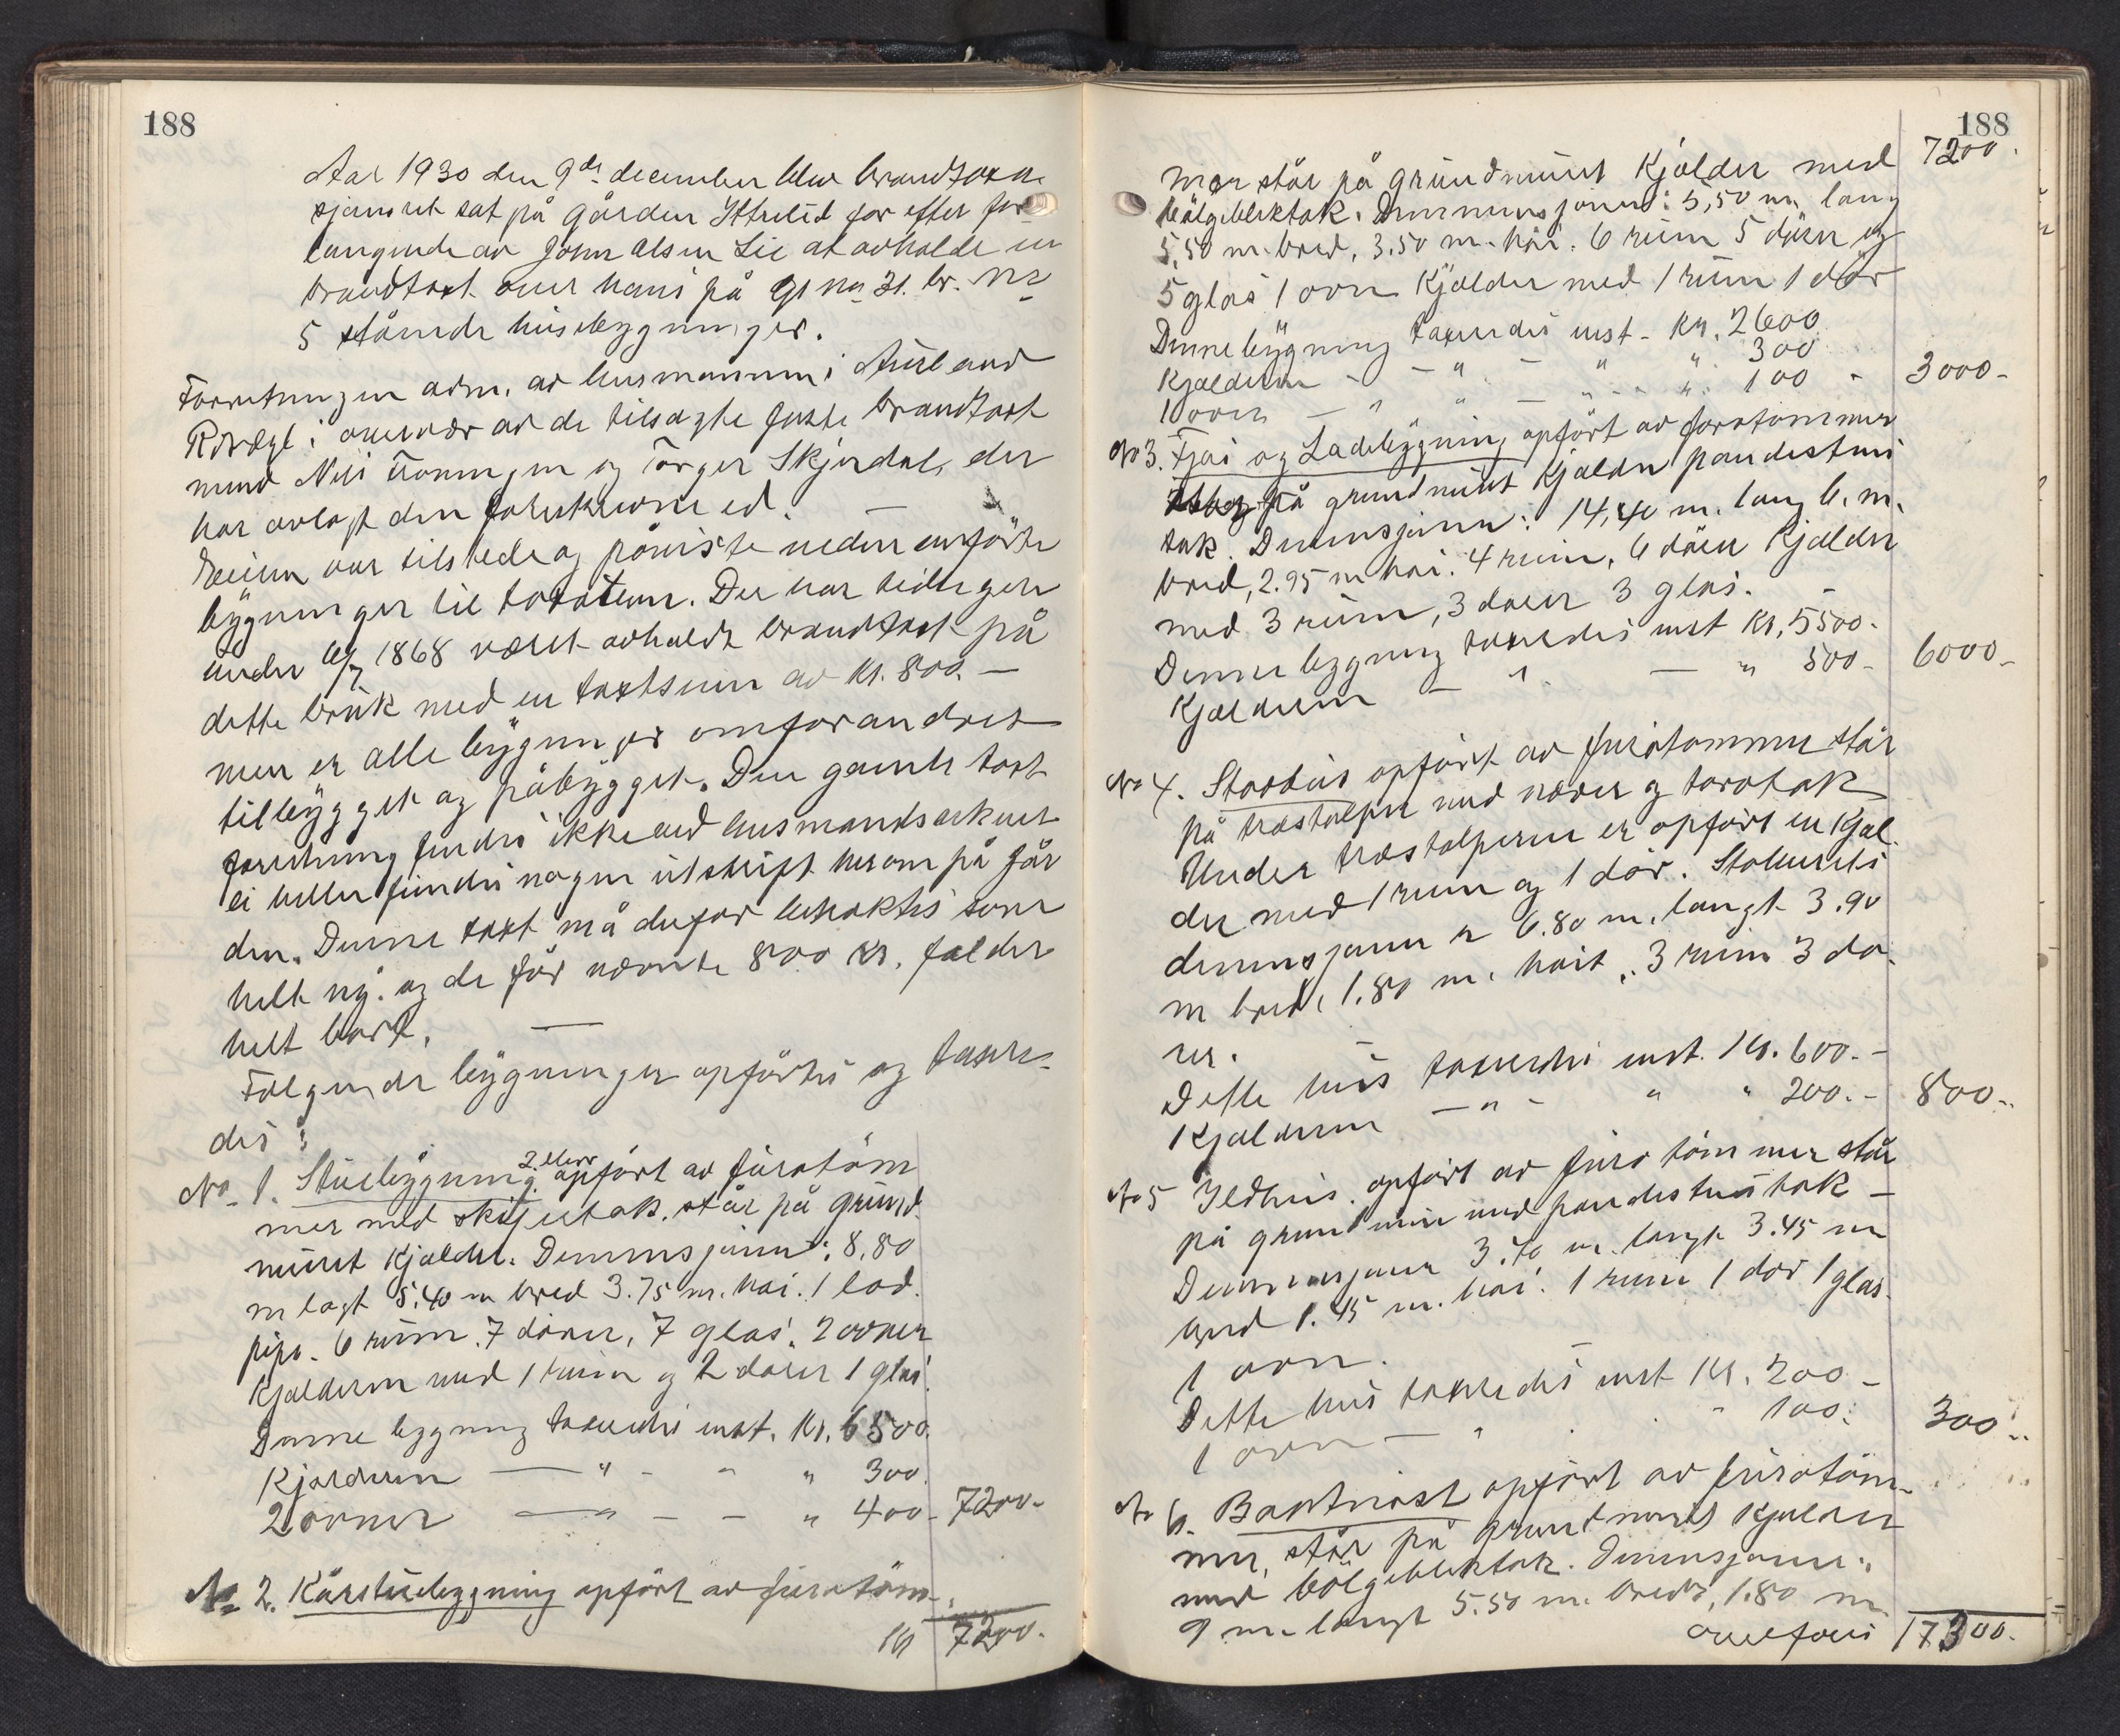 188
Aar 1930 den 9de december blev brandtaxa
sjonsret sat på gården Ytterlid for efter for
langende av John Olsen Lie at avholde en
brandtaxt over hans på gr. no 31. br. no
5 stående husebygninger.
Forretningen adm. av lensmannen i Aurland
R. Vægt i overvær av de tilsagte faste brandtaxt
mend Nils Fronnngen og Torger Skjerdal, der
har avlagt den foreskrevne ed. —
Eieren var tilstede og påviste nedenanførte
bygninger til taxation. Der har tidligere
under 1868 været avholdt brandtaxt på
dette bruk med en taxtsum av kr. 800. —
men er alle bygninger omforandret
tilbygget og påbygget. Den gamle taxt
forretning findes ikke ved lensmandsarkivet
ei heller findes nogen utskrift herom på går
den. Denne taxt må derfor betraktes som
helt ny. og de før nævnte 800 kr. falder
helt bort. —
Følgende bygninger opførtes og taxer-
des:
No 1. Stuebygning. 2 etars opført av furotöm
mer med skifertak. står på grund-
muret kjælder. Dimensjoner: 8,80
m lagt 5.40 m bred 3.75 m. høi. 1 lad.
pipe. 6 rum. 7 dører, 7 glas. 2 ovner
Kjælderen med 1 rum og 2 dører 1 glas.
Denne bygning taxerdes verst. Kr. 6500.
Kjælderen — " - " " 300.
2 ovner — " — — " 400- 7200-
No 2. Kårstuebygning opført av furotöm-
kr 7200.
188
mer står på grundmuret Kjælder med 7200.
bölgeblektak. Dimensjoner: 5,50 m. lang
5,50 m. bred, 3.50 m. høi. 6 rum 5 dører og
5 glas 1 ovn Kjælder med 1 rum 1 dör
Denne bygning taxerdes verst - Kr. 2600
Kjælderen - - " - " " 300
1 ovn — " " — " - " 100 - 3000-
No 3. Fjøs og Ladebygning opført av furotömmer
på grundmuret Kjælder pandestens
tak. Dimensjoner: 14,40 m. lang 6. m.
bred, 2.95 m høi. 4 rum, 6 dører Kjælder
med 3 rum, 3 dører 3 glas. -
Denne bygning taxerdes verst Kr. 5500-
Kjælderen — " — " 500- 6000-
No 4. Stabburs opført av furotømmer står
på træstolper med næver og torvtak
Under træstolperne er opført en Kjæl-
der med 1 rum og 1 dør. Stabburets
dimensjoner er 6.80 m. langt 3.90
m bred, 1.80 m. høit, 3 rum 3 dø-
rer.
Dette hus taxerdes verst. Kr. 600.-
Kjælderen — " - " " 200.- 800-
No 5 Ildhus. opført av furo tömmer står
på grundmur med pandestenstak —
Dimensjoner 3.70 m. langt 3.45 m
bred 1.45 m. høi. 1 rum 1 dør 1 glas.
1 ovn.
Dette hus taxerdes verst Kr. 200-
1 ovn — " " 100: 300-
No 6. Baatnøst opført av furotöm-
mer, står på grundmuret kjælder
med bölgeblektak. Dimensjoner:
9 m. langt 5.50 m. bredt, 1.80 m.
overføres 17300.